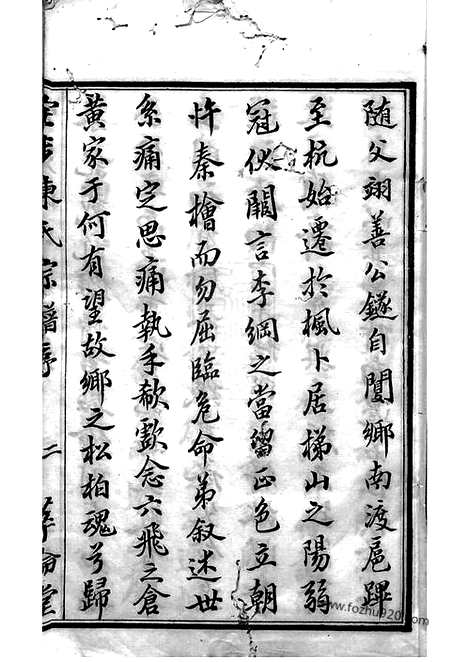 随父翊善公鐩自閿鄉南渡扈蹕
至杭始遷於楓卜居梯山之陽弱
冠伏闕言李綱之當留正色立朝
忤秦檜而勿屈臨危命弟叙述世
系痛定思痛執手欷歔念六飛之倉
黄家于何有望故鄉之松柏魂兮歸
陳氏宗譜序 二
www.fozhu920.com